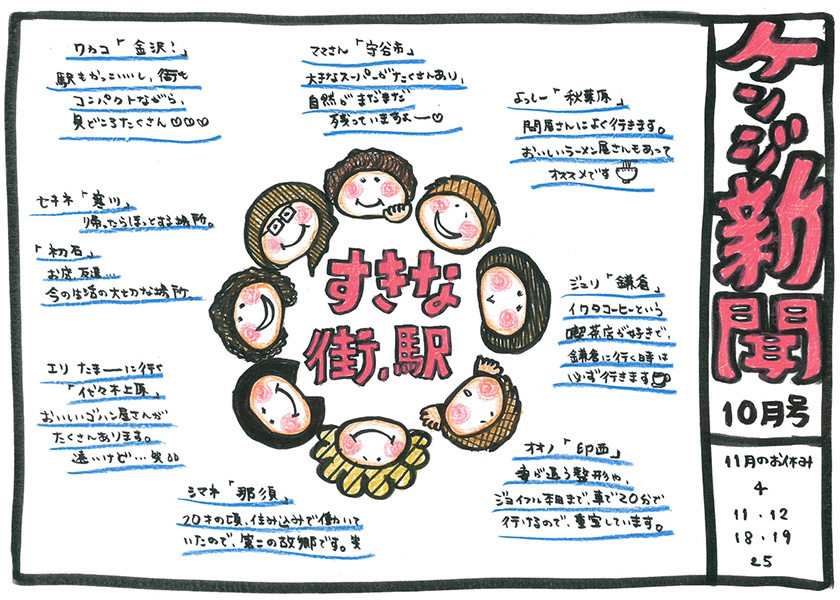 ケンジ新聞
10月号
11月のお休み
4
11・12
18・19
25
すきな
街、駅
ワカコ「金沢!」
駅もかっこいいし、街も
コンパクトながら、
見どころたくさん♡♡♡
ママさん「守谷市」
大きなスーパーがたくさんあり、
自然がまだまだ
残っていますよー♡
よっしー「秋葉原」
問屋さんによく行きます。
おいしいラーメン屋さんもあって
オススメです
セキネ「寒川」
帰ったらほっとする場所。
「初石」
お店、友達…
今の生活の大切な場所。
ジュリ「鎌倉」
イワタコーヒーという
喫茶店が好きで、
鎌倉に行く時は
必ず行きます
エリ たまーに行く
「代々木上原」
おいしいゴハン屋さんが
たくさんあります。
遠いけど…笑
オオノ「印西」
妻が通う整形や、
ジョイフル本田まで、車で20分で
行けるので、重宝しています。
シマネ「那須」
20才の頃、住み込みで働いて
いたので、第二の故郷です。笑